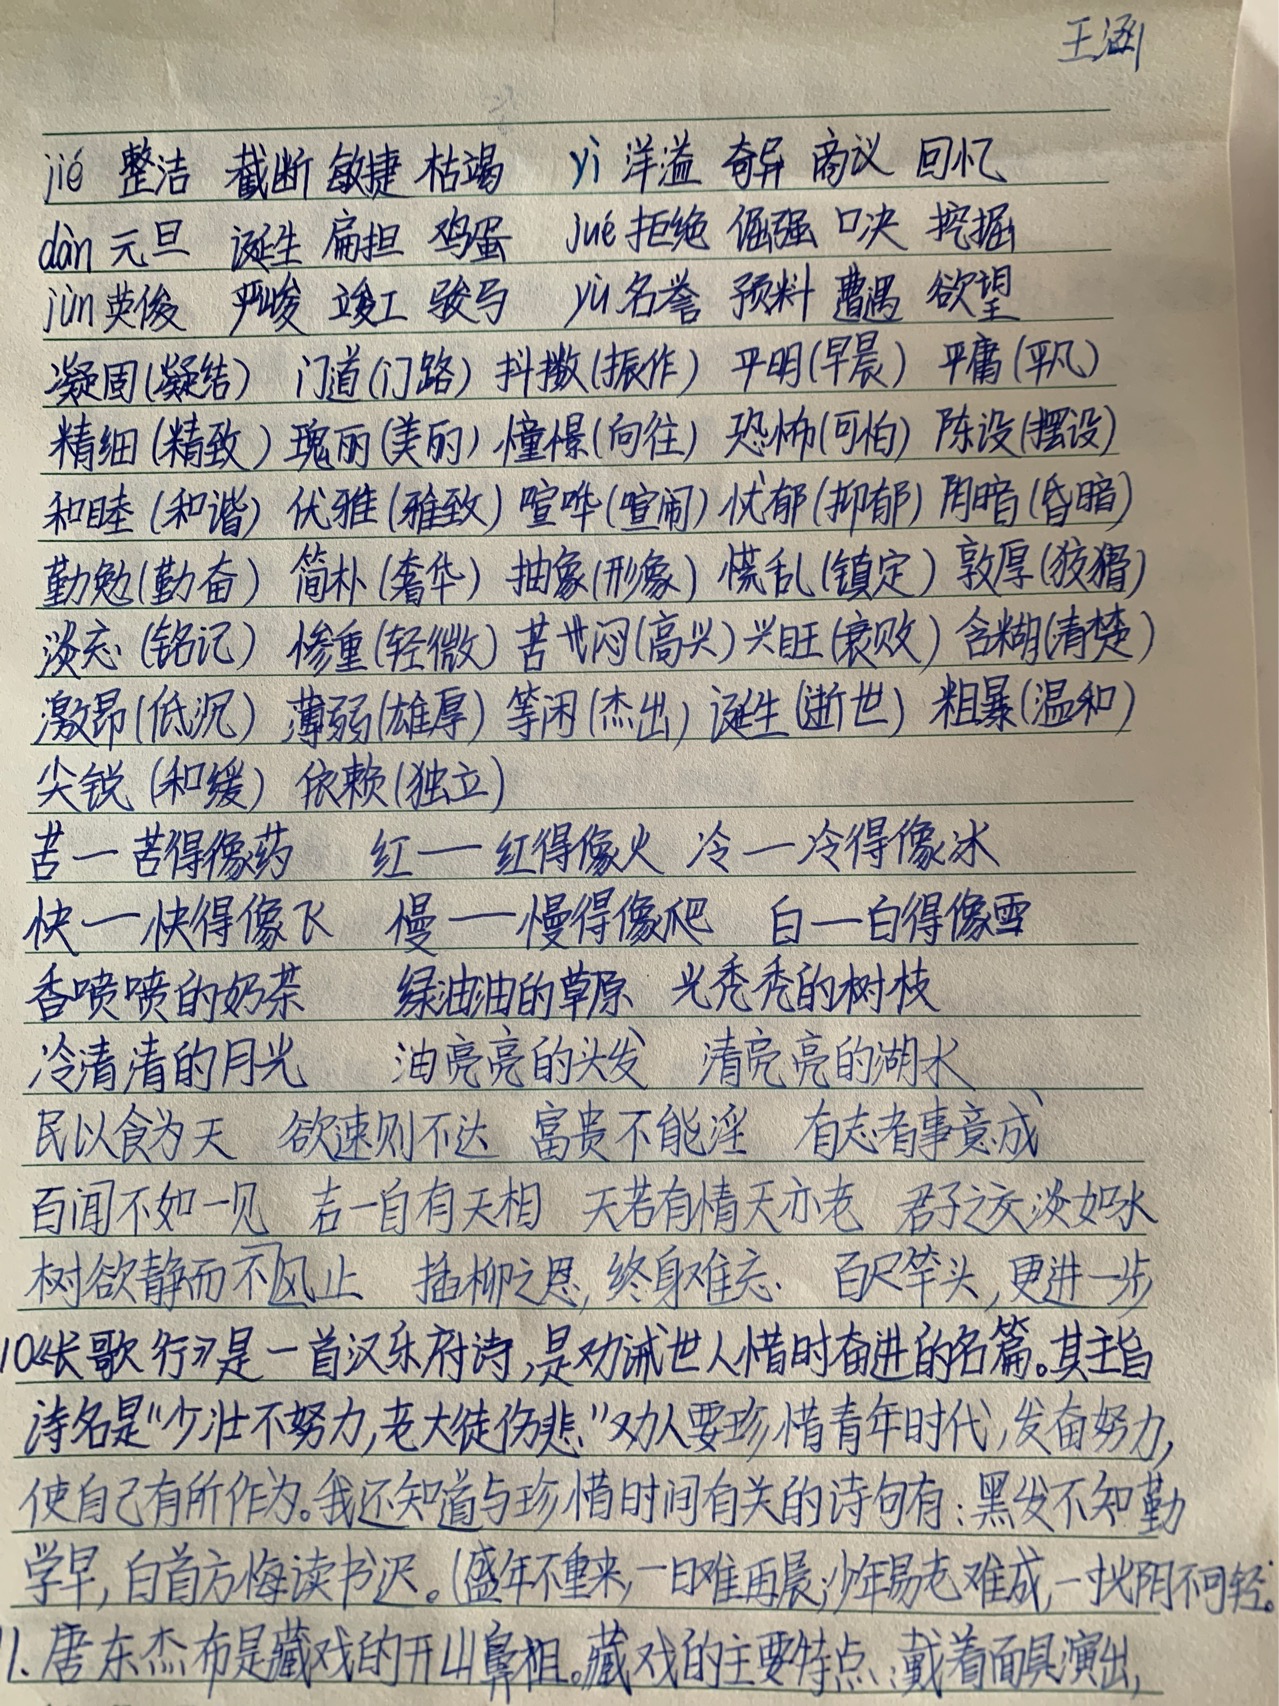 王涵
jié 整洁 截断 敏捷 枯竭 yì 洋溢 奇异 商议 回忆
dàn 元旦 诞生 扁担 鸡蛋 jué 拒绝 倔强 口决 挖掘
jùn 英俊 严峻 竣工 骏马 yù 名誉 预料 遭遇 欲望
凝固(凝结) 门道(门路) 抖擞(振作) 平明(早晨) 平庸(平凡)
精细(精致) 瑰丽(美丽) 憧憬(向往) 恐怖(可怕) 陈设(摆设)
和睦(和谐) 优雅(雅致) 喧哗(喧闹) 忧郁(抑郁) 阴暗(昏暗)
勤勉(勤奋) 简朴(奢华) 抽象(形象) 慌乱(镇定) 敦厚(狡猾)
淡忘(铭记) 惨重(轻微) 苦闷(高兴) 兴旺(衰败) 含糊(清楚)
激昂(低沉) 薄弱(雄厚) 等闲(杰出) 诞生(逝世) 粗暴(温和)
尖锐(和缓) 依赖(独立)
苦一苦得像药 红一红得像火 冷一冷得像冰
快一快得像飞 慢一慢得像爬 白一白得像雪
香喷喷的奶茶 绿油油的草原 光秃秃的树枝
冷清清的月光 油亮亮的头发 清亮亮的湖水
民以食为天 欲速则不达 富贵不能淫 有志者事竟成
百闻不如一见 吉一自有天相 天若有情天亦老 君子之交淡如水
树欲静而不风止 插柳之恩,终身难忘. 百尺竿头,更进一步
10《长歌行》是一首汉乐府诗,是劝诫世人惜时奋进的名篇。其主旨
诗名是"少壮不努力,老大徒伤悲"劝人要珍惜青年时代,发奋努力,
使自己有所作为。我还知道与珍惜时间有关的诗句有:黑发不知勤
学早,白首方悔读书迟。(盛年不重来,一日难再晨;少年易老难成,一寸光阴不可轻。
11.唐东杰布是藏戏的开山鼻祖。藏戏的主要特点:戴着面具演出,